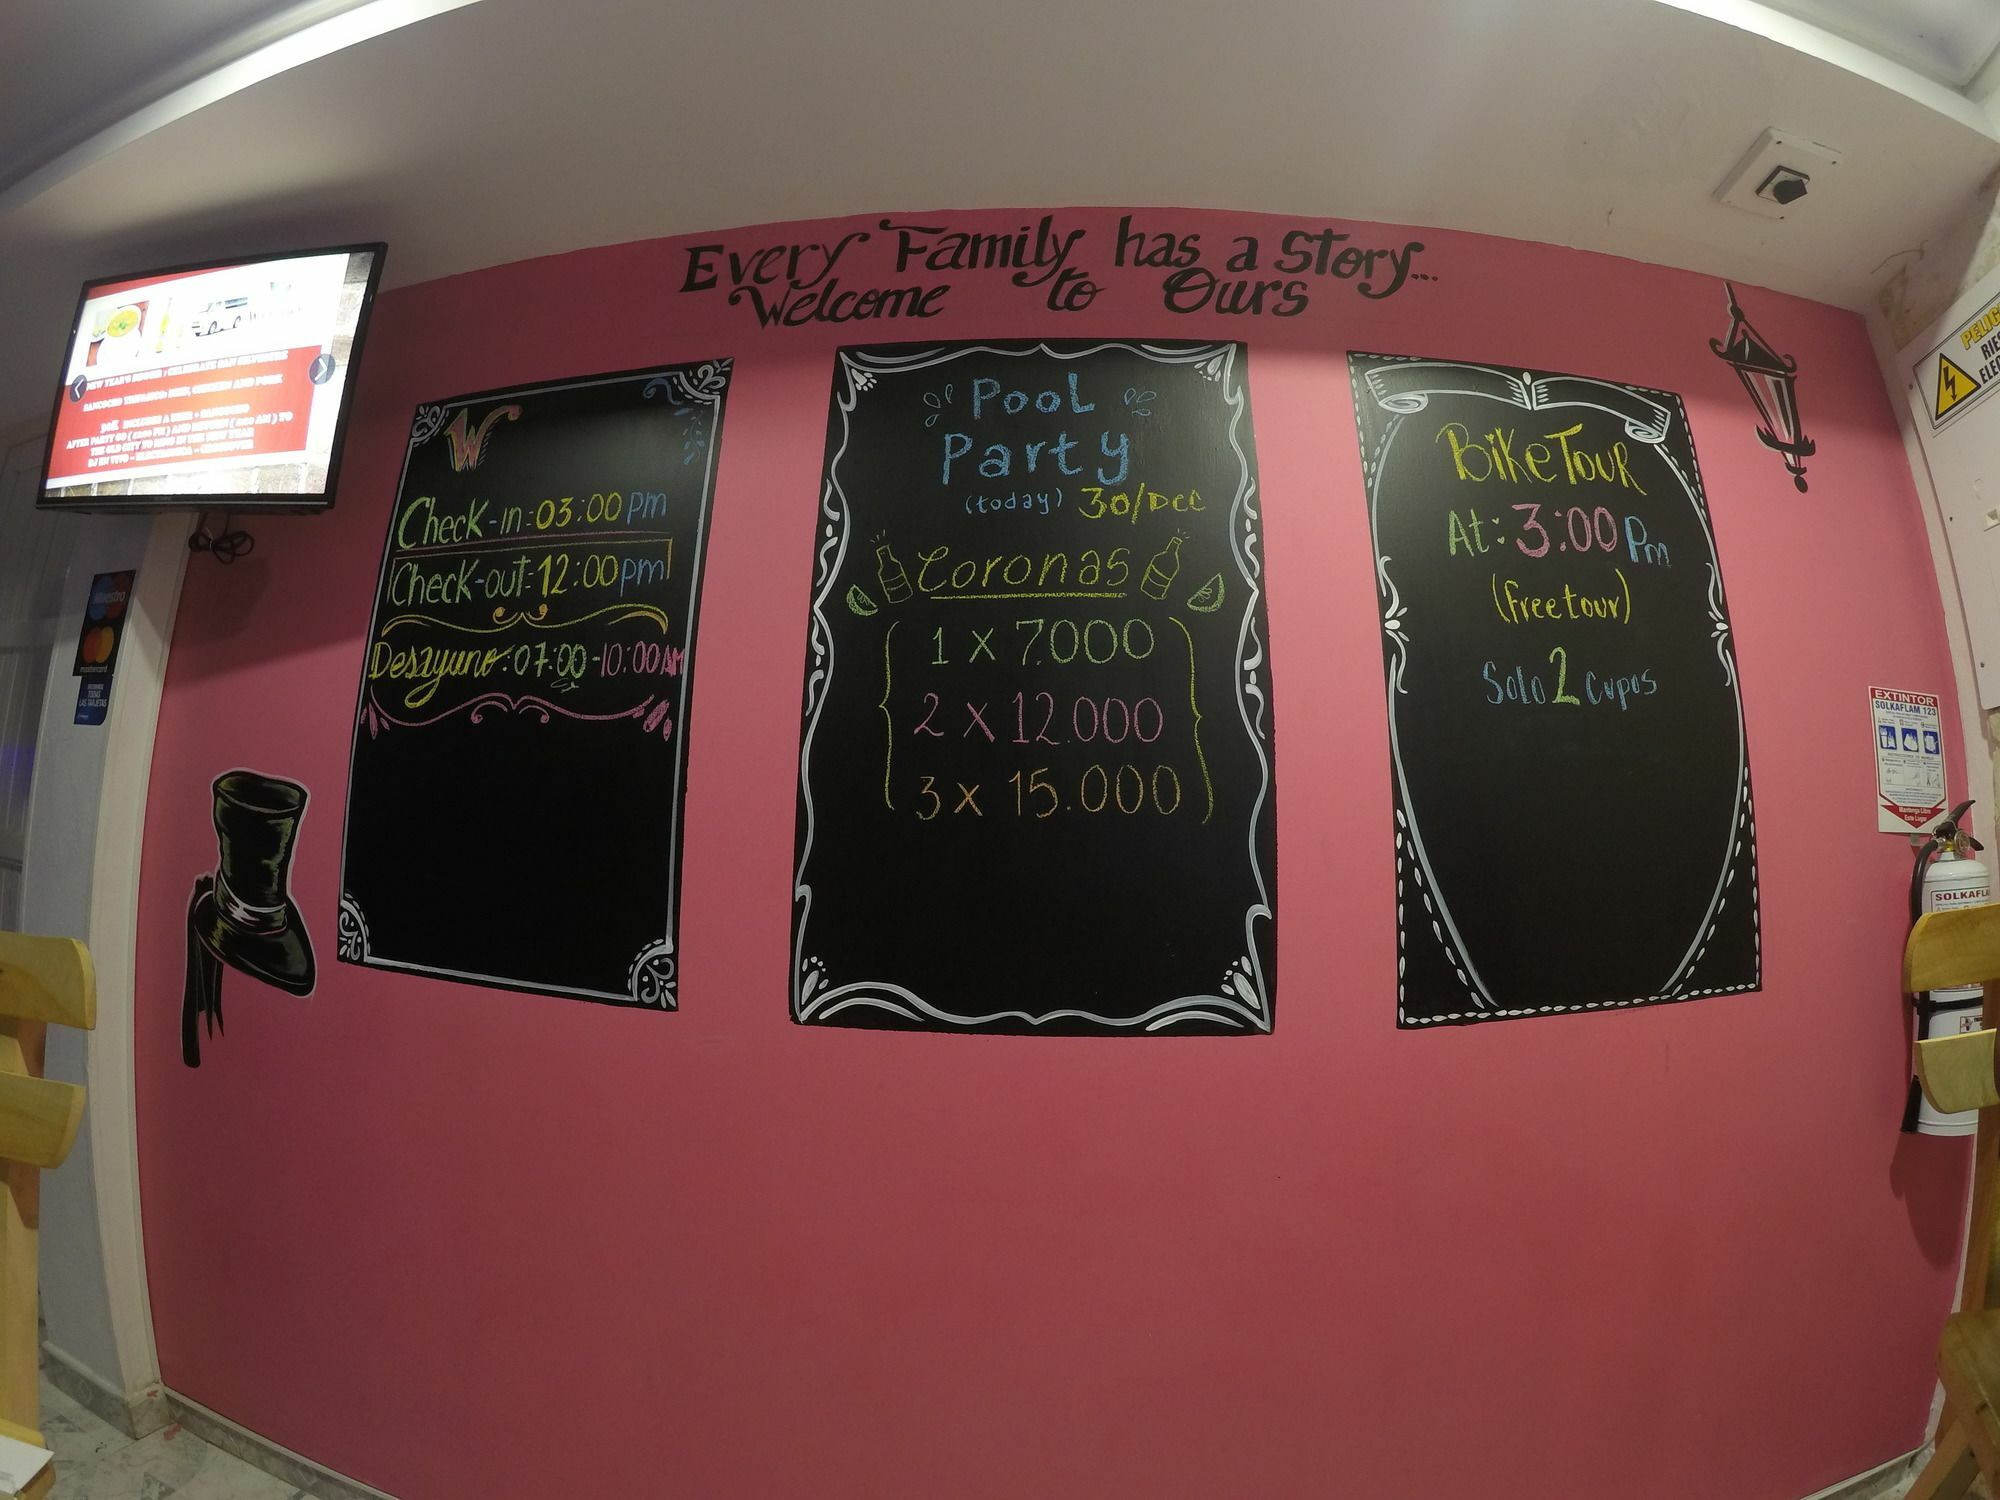 Every Family has a Story...
Welcome to Ours
NEW YEAR'S DINNER : CELEBRATE SAN SILVESTRE
SANCOCHO TRIFASICO: BEEF, CHICKEN AND PORK
INCLUDES A BEER + SANCOCHO
THE OLD CITY TO BRING IN THE NEW YEAR
Maestro
mastercard
TODAS
LAS TARJETAS
W
Check-in: 03:00 pm
Check-out: 12:00 pm
Desayuno: 07:00 - 10:00 AM
Pool
Party
(today) 30/Dec
Coronas
1 x 7.000
2 x 12.000
3 x 15.000
Bike Tour
At: 3:00 Pm
(free tour)
Solo 2 Cupos
EXTINTOR
SOLKAFLAM 123
Mantenga Libre
Este Lugar
SOLKAFL